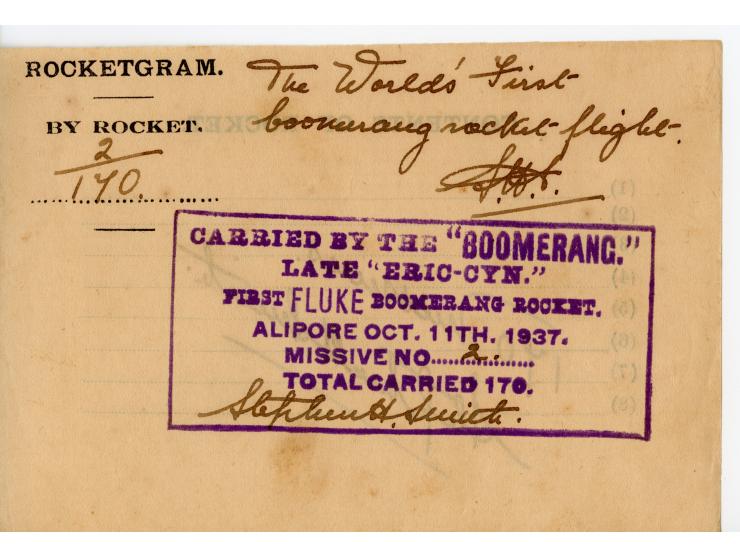 ROCKETGRAM.
The World's First
BY ROCKET.
boomerang rocket flight.
2
170.
S.H.S.
CARRIED BY THE "BOOMERANG."
LATE "ERIC-CYN."
FIRST FLUKE BOOMERANG ROCKET.
ALIPORE OCT. 11TH. 1937.
MISSIVE NO....2.......
TOTAL CARRIED 170.
Stephen H. Smith.
(1)
(2)
(4)
(5)
(6)
(7)
(8)